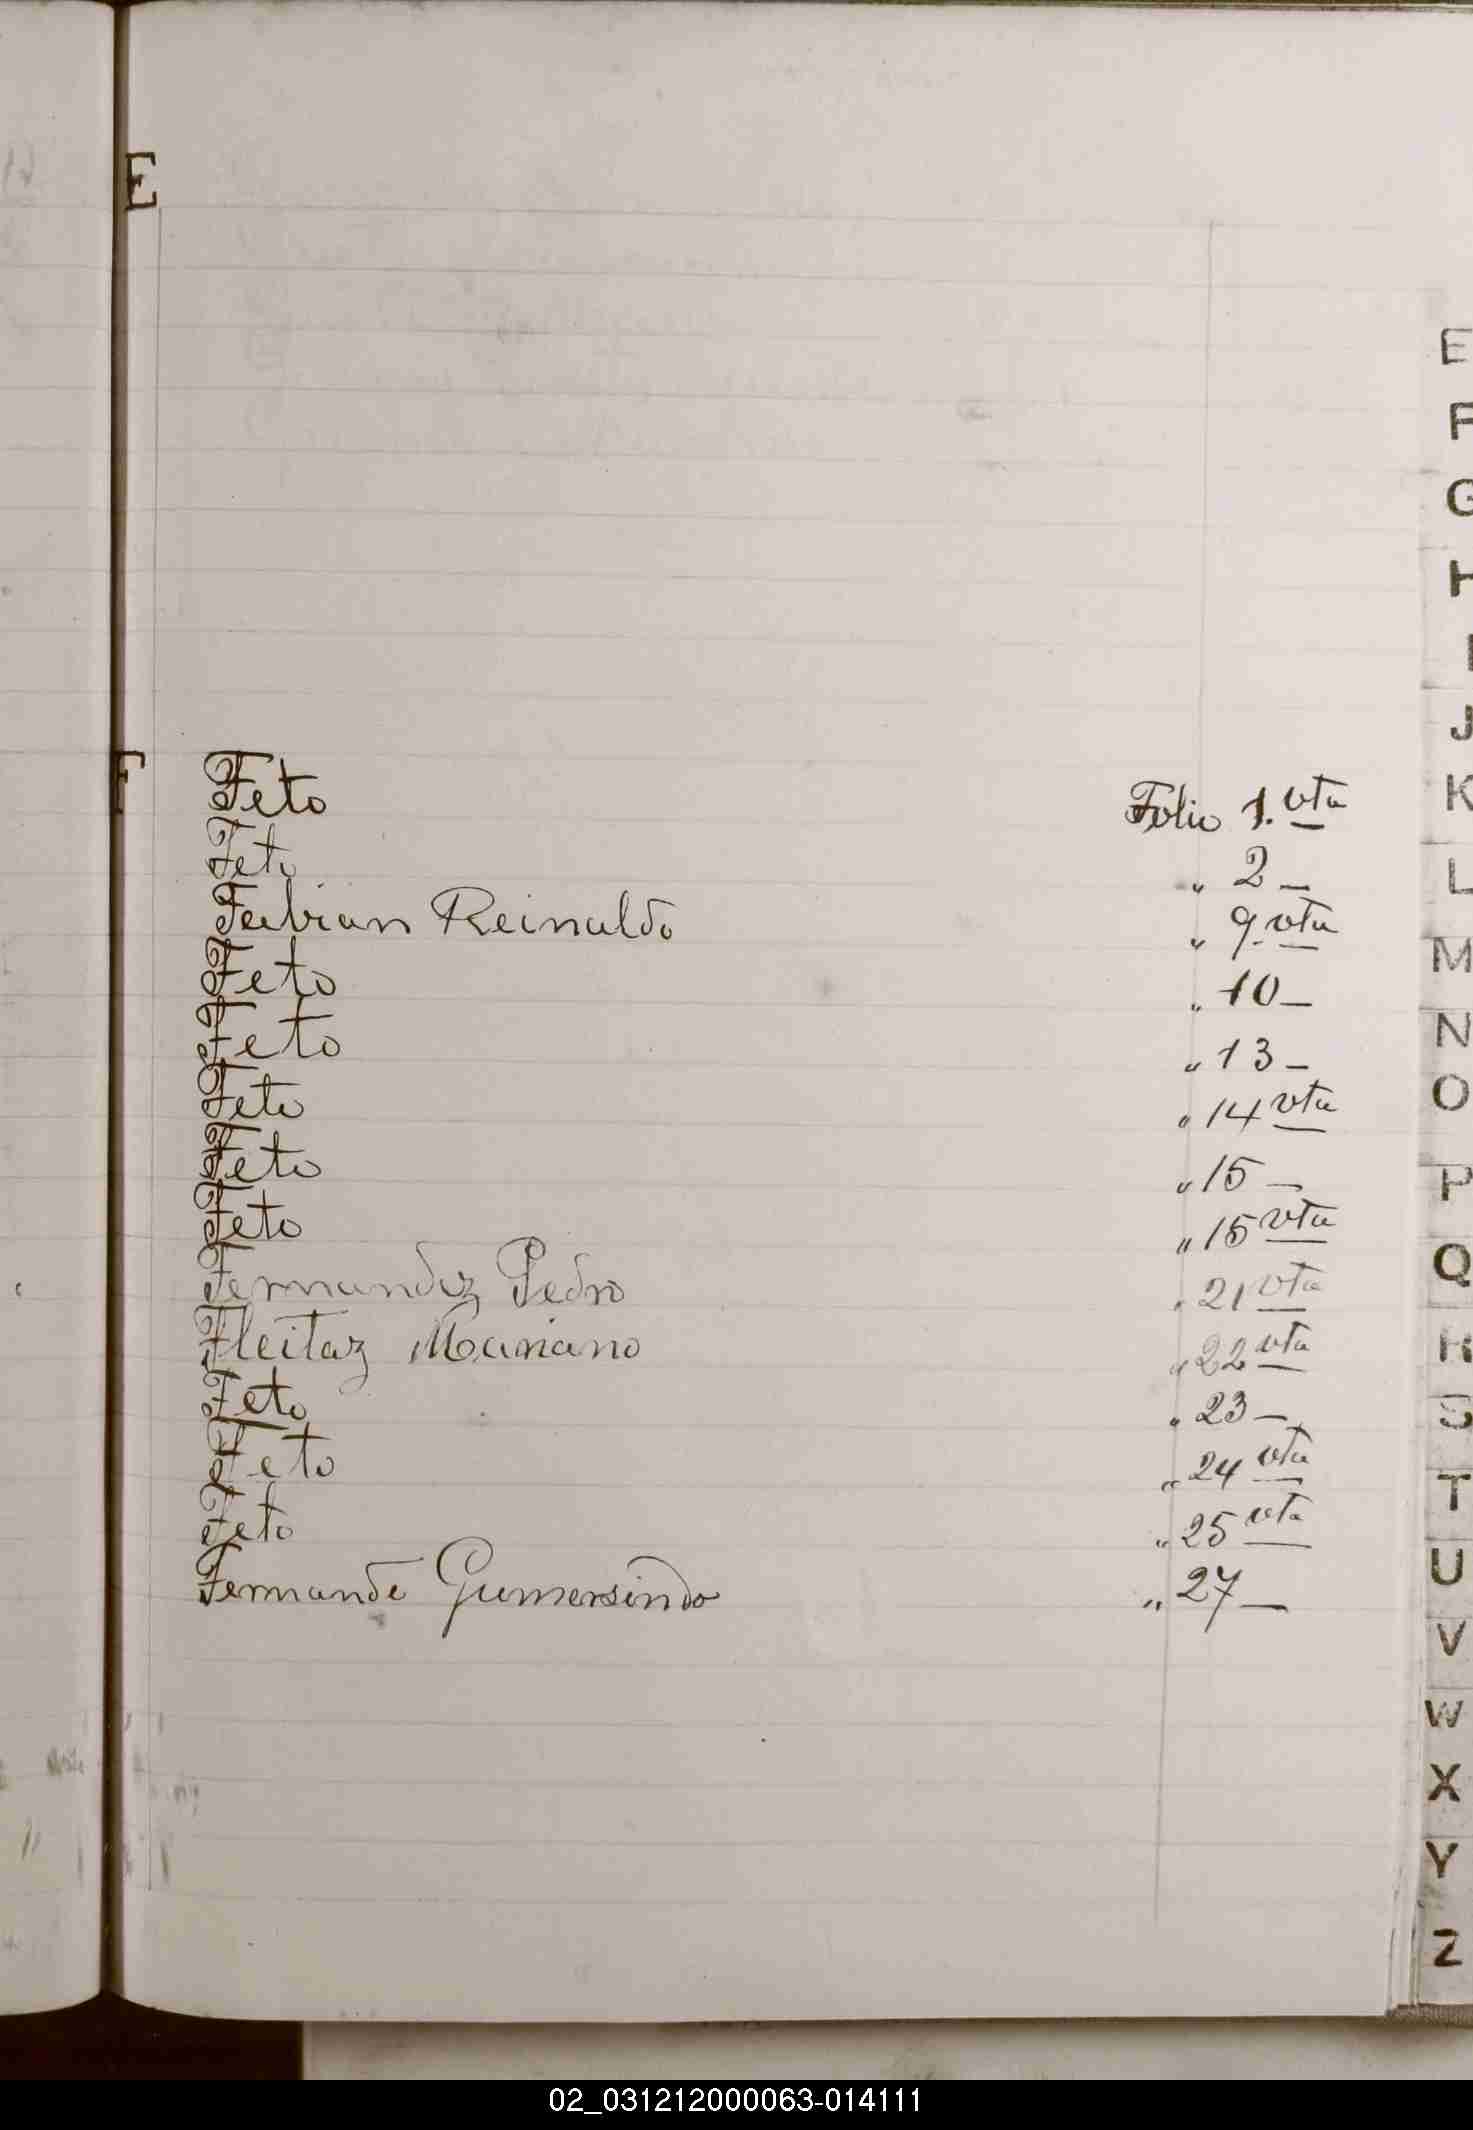 E
F
Feto Folio 1. vta
Feto " 2 —
Fabian Reinaldo " 9. vta
Feto " 10 —
Feto " 13 —
Feto " 14 vta
Feto " 15 —
Feto " 15 vta
Fernandez Pedro " 21 vta
Fleitaz Mariano " 22 vta
Feto " 23 —
Feto " 24 vta
Feto " 25 vta
Fernande Gumersindo " 27 —
E
F
G
H
I
J
K
L
M
N
O
P
Q
R
S
T
U
V
W
X
Y
Z
02_031212000063-014111